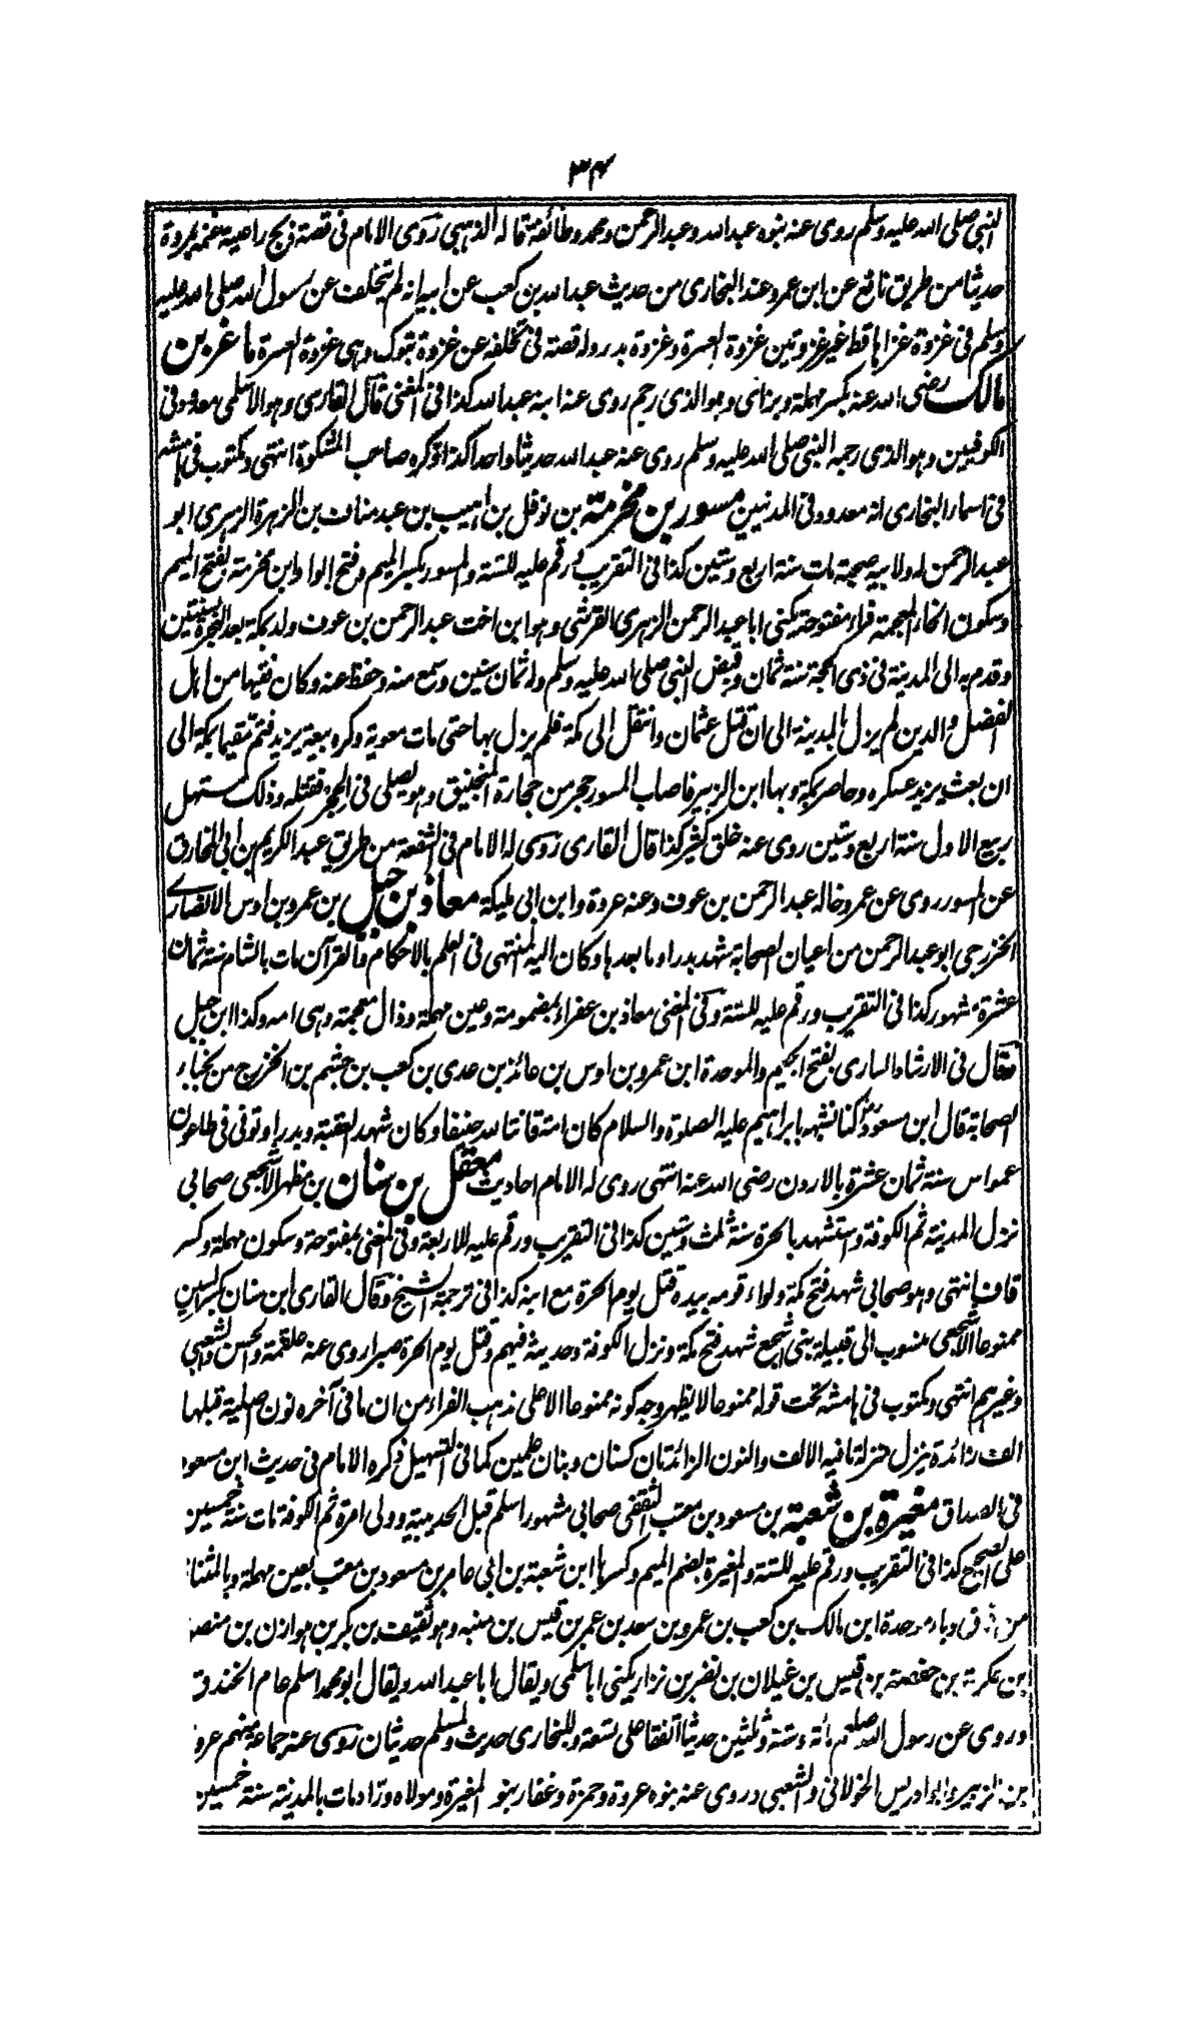 ٣٤
النبي صلى الله عليه وسلم روى عنه بنوه عبد الله وعبد الرحمن ومحمد وطائفة قاله الذهبي روى الامام فى قصة ذبح راعية غنمه بمروة
حديثا من طريق نافع عن ابن عمر وعند البخارى من حديث عبد الله بن كعب عن ابيه انه لم يتخلف عن رسول الله صلى الله عليه
وسلم فى غزوة غزاها قط غير غزوتين غزوة العسرة وغزوة بدر وله قصة فى تخلفه عن غزوة تبوك وهى غزوة العسرة ماعز بن
مالك رضى الله عنه بكسر مهملة وبزاى وهو الذى رجم روى عنه ابنه عبد الله كذا فى المغنى قال القارى وهو الاسلمى معدود فى
الكوفيين وهو الذى رجمه النبي صلى الله عليه وسلم روى عنه عبد الله حديثا واحدا كذا ذكره صاحب المشكوة انتهى ومكتوب فى هامشه
فى اسماء البخارى انه معدود فى المدنيين مسور بن مخرمة بن نوفل بن اهيب بن عبد مناف بن الزهرة الزهرى ابو
عبد الرحمن له ولابيه صحبة مات سنة اربع وستين كذا فى التقريب ورقم عليه للستة والمسور بكسر الميم وفتح الواو ابن مخرمة بفتح الميم
وسكون الخاء المعجمة فراء مفتوحة يكنى ابا عبد الرحمن الزهرى القرشى وهو ابن اخت عبد الرحمن بن عوف ولد بمكة بعد الهجرة بسنتين
وقدم به الى المدينة فى ذى الحجة سنة ثمان وقبض النبي صلى الله عليه وسلم وله ثمان سنين وسمع منه وحفظ عنه وكان فقيها من اهل
الفضل والدين لم يزل بالمدينة الى ان قتل عثمان وانتقل الى مكة فلم يزل بها حتى مات معوية وكره بيعة يزيد فثم مقيما بمكة الى
ان بعث يزيد عسكره وحاصر بمكة وبها ابن الزبير فاصاب المسور حجر من حجارة المنجنيق وهو يصلى فى الحجر فقتله وذلك مستهل
ربيع الاول سنة اربع وستين روى عنه خلق كثير كذا قال القارى روى له الامام فى الشفعة من طريق عبد الكريم بن ابى المخارق
عن المسور روى عن عمر وخاله عبد الرحمن بن عوف وعنه عروة وابن ابى مليكة معاذ بن جبل بن عمرو بن اوس الانصارى
الخزرجى ابو عبد الرحمن من اعيان الصحابة شهد بدرا وما بعدها وكان اليه المنتهى فى العلم بالاحكام والقرآن مات بالشام سنة ثمان
عشرة مشهور كذا فى التقريب ورقم عليه للستة وفى المغنى معاذ بن عفراء بمضمومة وعين مهملة وذال معجمة وهى امه وكذا ابن جبل
وقال فى الارشاد السارى بفتح الجيم والموحدة ابن عمرو بن اوس بن عائذ بن عدى بن كعب بن جشم بن الخزرج من نجباء
الصحابة قال ابن مسعود كنا نشبهه بابراهيم عليه الصلوة والسلام كان امة قانتا لله حنيفا وكان شهد العقبة وبدرا وتوفى فى طاعون
عمواس سنة ثمان عشرة بالاردن رضى الله عنه انتهى روى له الامام احاديث معقل بن سنان بن مظهر الاشجعى صحابى
نزل المدينة ثم الكوفة واستشهد بالحرة سنة ثلث وستين كذا فى التقريب ورقم عليه للاربعة وفى المغنى بمفتوحة وسكون مهملة وكسر
قاف انتهى وهو صحابى شهد فتح مكة ولواء قومه بيده قتل يوم الحرة مع ابنه كذا فى ترجمة الشيخ وقال القارى ابن سنان بكسر السين
ممنوعا الاشجعى منسوب الى قبيلة بنى اشجع شهد فتح مكة ونزل الكوفة وحديثه فيهم وقتل يوم الحرة صبرا روى عنه علقمة والحسن والشعبى
وغيرهم انتهى ومكتوب فى هامشه تحت قوله ممنوعا لا يظهر وجه كونه ممنوعا الا على مذهب الفراء من ان ما فى آخره نون اصلية قبلها
الف زائدة ينزل منزلة ما فيه الالف والنون الزائدتان كسنان وبنان علمين كما فى التسهيل ذكره الامام فى حديث ابن مسعود
فى الصداق مغيرة بن شعبة بن مسعود بن معتب الثقفى صحابى مشهور اسلم قبل الحديبية وولى امرة ثم الكوفة مات سنة خمسين
على الصحيح كذا فى التقريب ورقم عليه للستة والمغيرة بضم الميم وكسرها ابن شعبة بن ابى عامر بن مسعود بن معتب بعين مهملة وبالمثناة
من فوق وباء موحدة ابن مالك بن كعب بن عمرو بن سعد بن عمر بن قيس بن منبه وهو ثقيف بن بكر بن هوازن بن منصور
ابن عكرمة بن حفصة بن قيس بن غيلان بن نضر بن نزار يكنى ابا سلمى ويقال ابا عبد الله ويقال ابو محمد اسلم عام الخندق
وروى عن رسول الله صلعم مائة وستة وثلثين حديثا اتفقا على تسعة وللبخارى حديث ولمسلم حديثان روى عنه جماعة منهم عروة
بن الزبير وابو ادريس الخولانى والشعبى وروى عنه بنوه عروة وحمزة وغفار بنو المغيرة ومولاه وراد مات بالمدينة سنة خمسين